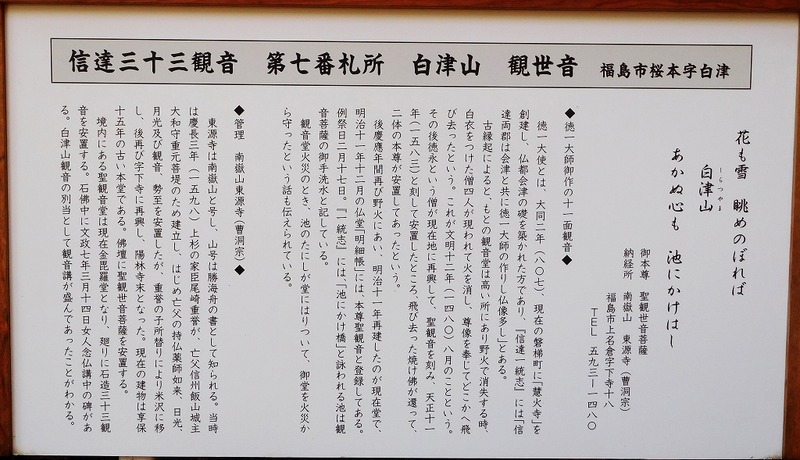 信達三十三観音　第七番札所　白津山　観世音　福島市桜本字白津
花も雪　眺めのぼれば
しらつやま
白津山
あかぬ心も　池にかけはし
御本尊　聖観世音菩薩
納経所　南嶽山　東源寺（曹洞宗）
福島市上名倉字下寺十八
TEL　五九三ー一四八〇
◆徳一大師御作の十一面観音◆
徳一大使とは、大同二年（八〇七）、現在の磐梯町に「慧火寺」を
創建し、仏都会津の礎を築かれた方であり、『信達一統志』には「信
達両郡は会津と共に徳一大師の作りし仏像多し」とある。
古縁起によると、もとの観音堂は高い所にあり野火で消失する時、
白衣をつけた僧四人が現われて火を消し、尊像を奉じてどこかへ飛
び去ったという。これが文明十二年（一四八〇）八月のことという。
その後徳永という僧が現在地に再興して、聖観音を刻み、天正十一
年（一五八三）と刻して安置したところ、飛び去った焼け佛が還って、
二体の本尊が安置してあったという。
後慶應年間再び野火にあい、明治十一年再建したのが現在堂で、
明治十一年十二月の仏堂「明細帳」には、本尊聖観音と登録してある。
例祭日二月十七日。『一統志』には、「池にかけ橋」と詠われる池は観
音菩薩の御手洗水と記している。
観音堂火災のとき、池のたにしが堂にはりついて、御堂を火災か
ら守ったという話も伝えられている。
◆管理　南嶽山東源寺（曹洞宗）◆
東源寺は南嶽山と号し、山号は勝海舟の書として知られる。当時
は慶長三年（一五九八）上杉の家臣尾崎重誉が、亡父信州飯山城主
大和守重元菩堤のため建立し、はじめ亡父の持仏薬師如来、日光、
月光及び観音、勢至を安置したが、重誉の子所替りにより米沢に移
し、後再び字下寺に再興し、陽林寺末となった。現在の建物は享保
十五年の古い本堂である。佛壇に聖観世音菩薩を安置する。
境内にある聖観音堂は現在金毘羅堂となり、廻りに石造三十三観
音を安置する。石佛中に文政七年三月十四日女人念仏講中の碑があ
る。白津山観音の別当として観音講が盛んであったことがわかる。